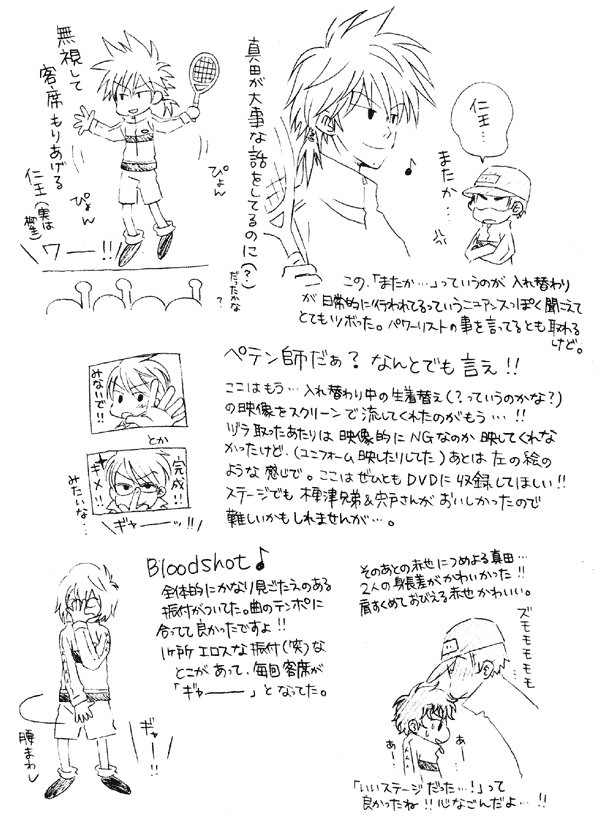 真田が大事な話をしてるのに(?)
だったかな?
無視して
客席もりあげる
仁王(実は
ぴょん
ぴょん
ワー!!
仁王…
またか…
この、「またか…」っていうのが入れ替わり
が日常的に行われてるっていうニュアンスっぽく聞こえて
とてもツボった。パワーリストの事を言ってるとも取れる
けど。
ペテン師だぁ?なんとでも言え!!
みないで!!
とか
完成!!
ギメ!!
みたいな…
ギャーッ!!
ここはもう…入れ替わり中の生着替え(?っていうのかな?)
の映像をスクリーンで流してくれたのがもう…!!
ヅラ取ったあたりは映像的にNGなのか映してくれな
かったけど、(ユニフォーム映したりしてた)あとは左の絵の
ような感じで。ここはぜひともDVDに収録してほしい!!
ステージでも樺津兄弟&宍戸さんがおいしかったので
難しいかもしれませんが…。
Bloodshot♪
全体的にかなり見ごたえのある
振付がついてた。曲のテンポに
合ってて良かったですよ!!
1ヶ所エロスな振付(笑)な
とこがあって、毎回客席が
「ギャー」となってた。
腰まわし
ギャー!!
そのあとの赤也につめよる真田…
2人の身長差がかわいかった!!
肩すくめておびえる赤也かわいい。
ズモモモモモ
あー…
あー…
「いいステージだった…!」って
良かったね!!心なごんだよ…!!